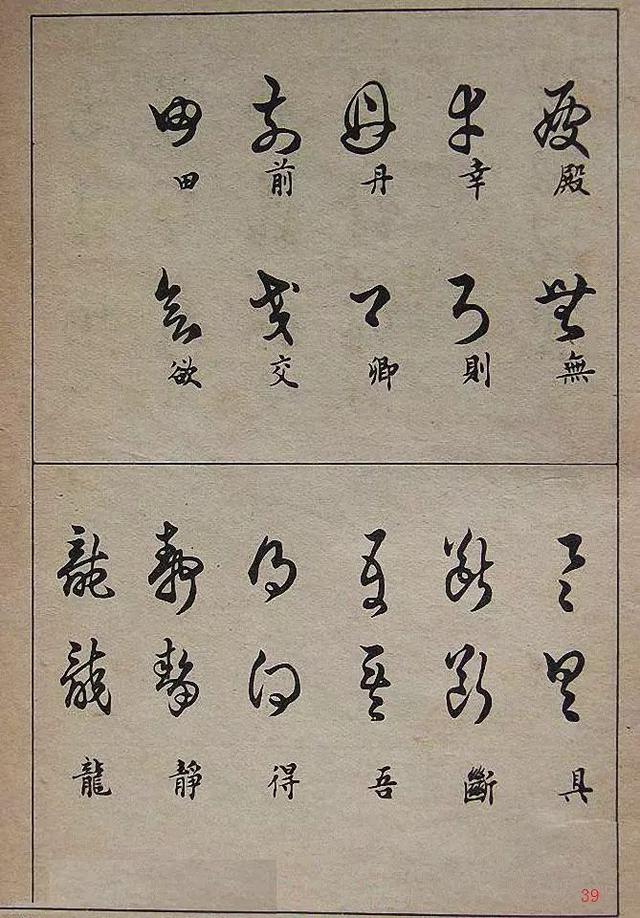 殿無
幸則
丹卿
前交
田欲
具
斷
吾
得
靜
龍
39